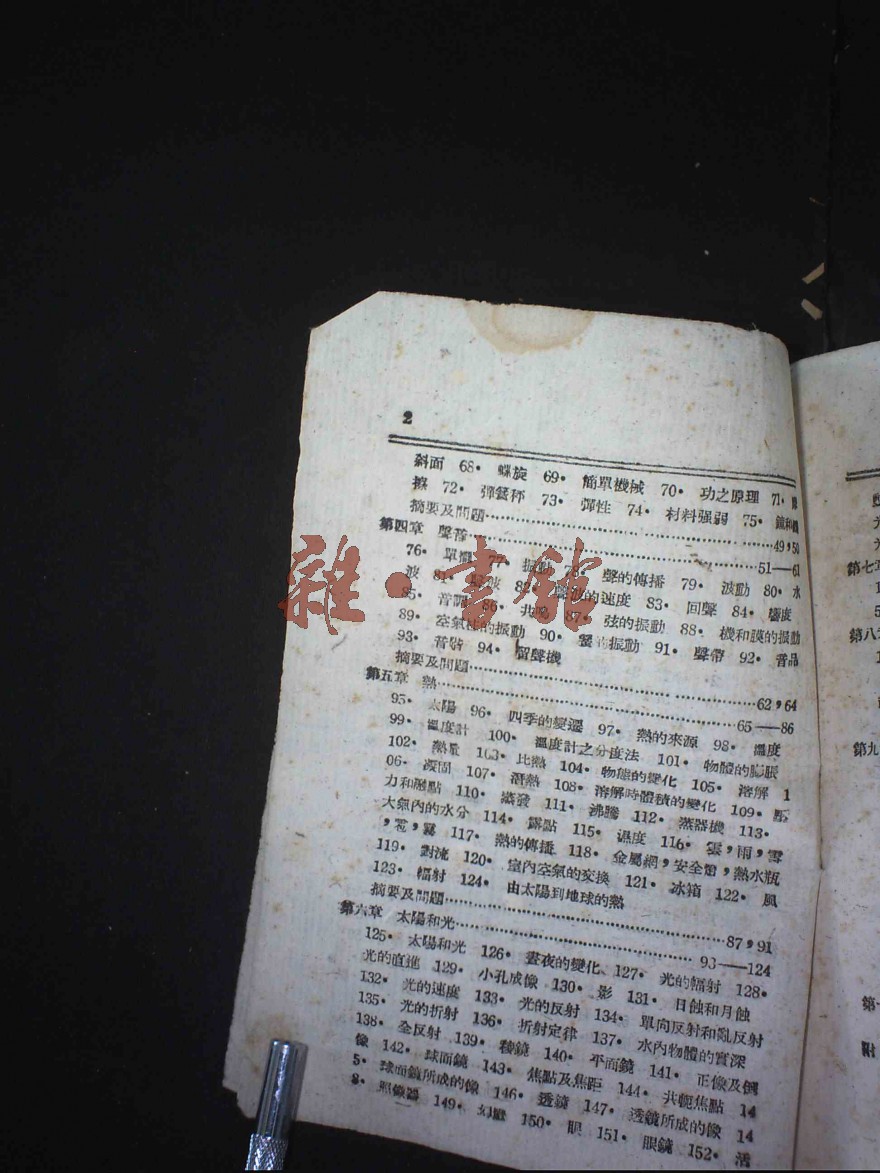 2
斜面 68. 螺旋 69. 簡單機械 70. 功之原理 71.
擦 72. 彈簧秤 73. 彈性 74. 材料强弱 75.
摘要及問題……49,50
第四章 聲音……51—61
76. 單擺 77. 振動 78. 聲的傳播 79. 波動 80. 水
波 81. 82. 聲波的速度 83. 回聲 84. 響度
85. 音調 86. 共鳴 87. 弦的振動 88. 機和膜的振動
89. 空氣柱的振動 90. 振動 91. 聲帶 92. 音品
93. 音 94. 留聲機
摘要及問題……62,64
第五章 熱……65—86
95. 太陽 96. 四季的變遷 97. 熱的來源 98. 溫度
99. 溫度計 100. 溫度計之分度法 101. 物體的膨脹
102. 熱量 103. 比熱 104. 物態的變化 105. 溶解 1
06. 凝固 107. 潛熱 108. 溶解時體積的變化 109. 壓
力和融點 110. 蒸發 111. 沸騰 112. 蒸器機 113.
大氣內的水分 114. 露點 115. 濕度 116. 雲,雨,雪
,雹,霧 117. 熱的傳播 118. 金屬網,安全燈,熱水瓶
119. 對流 120. 室內空氣的交換 121. 冰箱 122. 風
123. 輻射 124. 由太陽到地球的熱
摘要及問題……87,91
第六章 太陽和光……93—124
125. 太陽和光 126. 晝夜的變化 127. 光的輻射 128.
光的直進 129. 小孔成像 130. 影 131. 日蝕和月蝕
132. 光的速度 133. 光的反射 134. 單向反射和亂反射
135. 光的折射 136. 折射定律 137. 水內物體的實深
138. 全反射 139. 稜鏡 140. 平面鏡 141. 正像及倒
像 142. 球面鏡 143. 焦點及焦距 144. 共軛焦點 14
5. 球面鏡所成的像 146. 透鏡 147. 透鏡所成的像 14
8. 照像器 149. 幻燈 150. 眼 151. 眼鏡 152. 活
第七
第八
第九
第
附
雜·書館